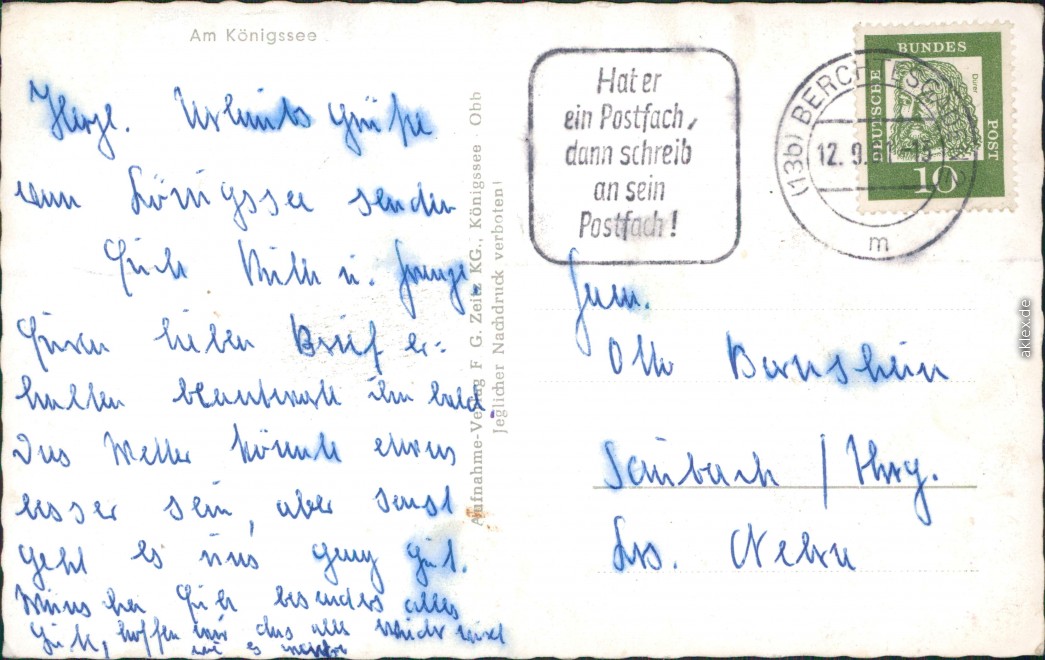 Am Königssee
Herzl. Urlaubs Grüße
vom Königssee senden
Euch u.
Euren lieben Brief er-
halten beantworte ihn bald.
Das Wetter könnte etwas
besser sein, aber sonst
geht es uns ganz gut.
Wünschen Euch besonders alles
Gute, hoffen wir das alles wieder
wie es
Aufnahme-Verlag F G. Zeitz KG., Königssee - Obb
Jeglicher Nachdruck verboten!
Hat er
ein Postfach,
dann schreib
an sein
Postfach!
(13b) BERCHTESGADEN
12. 9. 61 - 13
m
DEUTSCHE BUNDES POST
Dürer
10
Fam.
Otto Bernstein
Saubach / Thrg.
Krs. Nebra
aklex.de